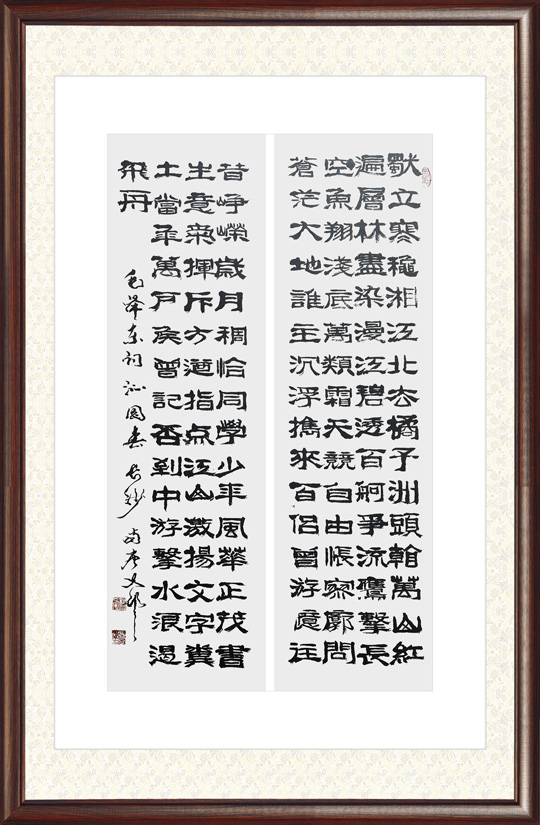 獨立寒穐湘江北去橘子洲頭看萬山紅
遍層林盡染漫江碧透百舸爭流鷹擊長
空魚翔淺底萬類霜天競自由悵寥廓問
蒼茫大地誰主沉浮攜來百侶曾游憶往
昔崢嶸歲月稠恰同學少年風華正茂書
生意氣揮斥方遒指点江山激揚文字糞
土當年萬戶矦曾記否到中游擊水浪遏
飛舟
毛澤东詞沁園春長沙